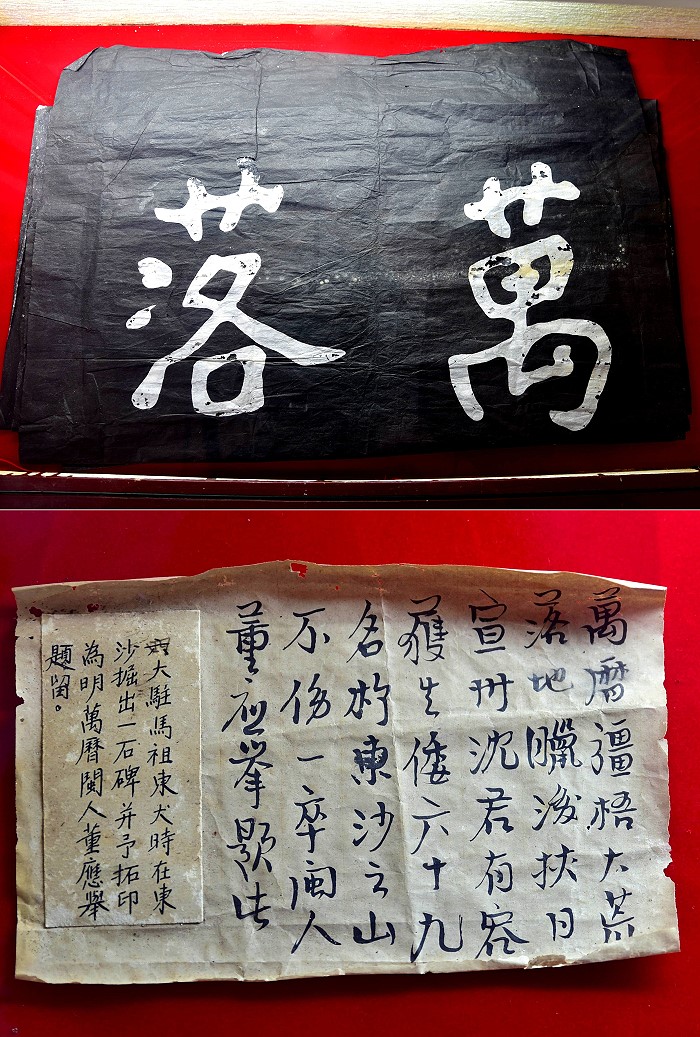 萬
落
萬曆彊梧大荒
落地臘後挾日
宣州沈君有容
獲生倭六十九
名於東沙之山
不傷一卒閩人
董應舉題此
大駐馬祖東犬時在東
沙掘出一石碑并予拓印
為明萬曆閩人董應舉
題留。